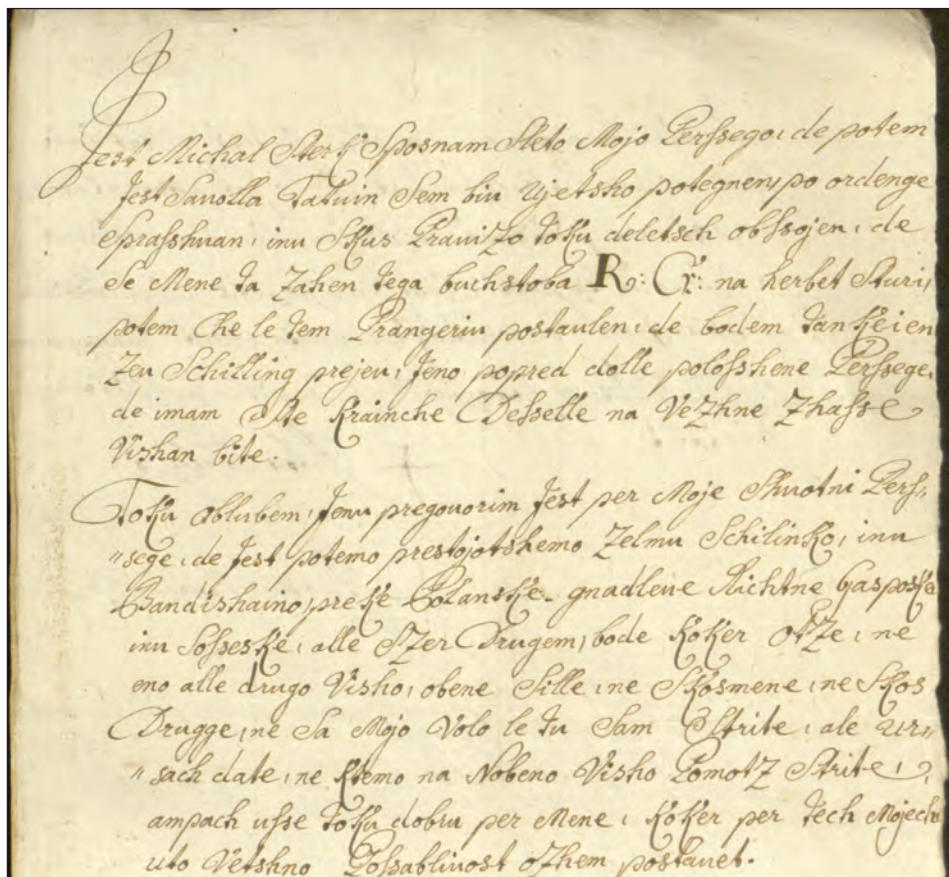 Jest Michal Sterk Sposnam Steto Mojo Perssego, de potem
Jest Savolla Tatuin Sem biu Ujetsho potegnen, po ordenge
sprasshuan, inu Skus Pravitzo toku deletsch obssojen, de
Se Mene ta Zahen tega buchstoba R: G: na herbet Sturi,
potem Che le tem Prangeriu postaulen, de bodem tankeien
Zeu Schilling prejeu, Jeno popred dolle polosshene Perssege,
de imam Krainche Desselle na Vezhne Zhasse
Vishan bite.
Toku oblubem, Jenu pregouorim Jest per Moje Shuotni Pers,,
,,sege, de Jest potemo prestojotshemo Zelmu Schilinko, inu
Bandishaino, preke Polanske gnadleue Richtne Gasposke
inu Sosseske, alle Szer Drugem, bode koker otze, ne
eno alle drugo Visho, obene Sille, ne Skosmene, ne Skos
Drugge, ne Sa Mojo Volo le tu Sam Strite, ale ur,,
,,sach date, ne ktemo na Nobeno Visho Pomotz Strite,
ampach usse toku dobru per Mene, koker per tech Mojech
uto Vetshno Possablivost ozhem postauet.